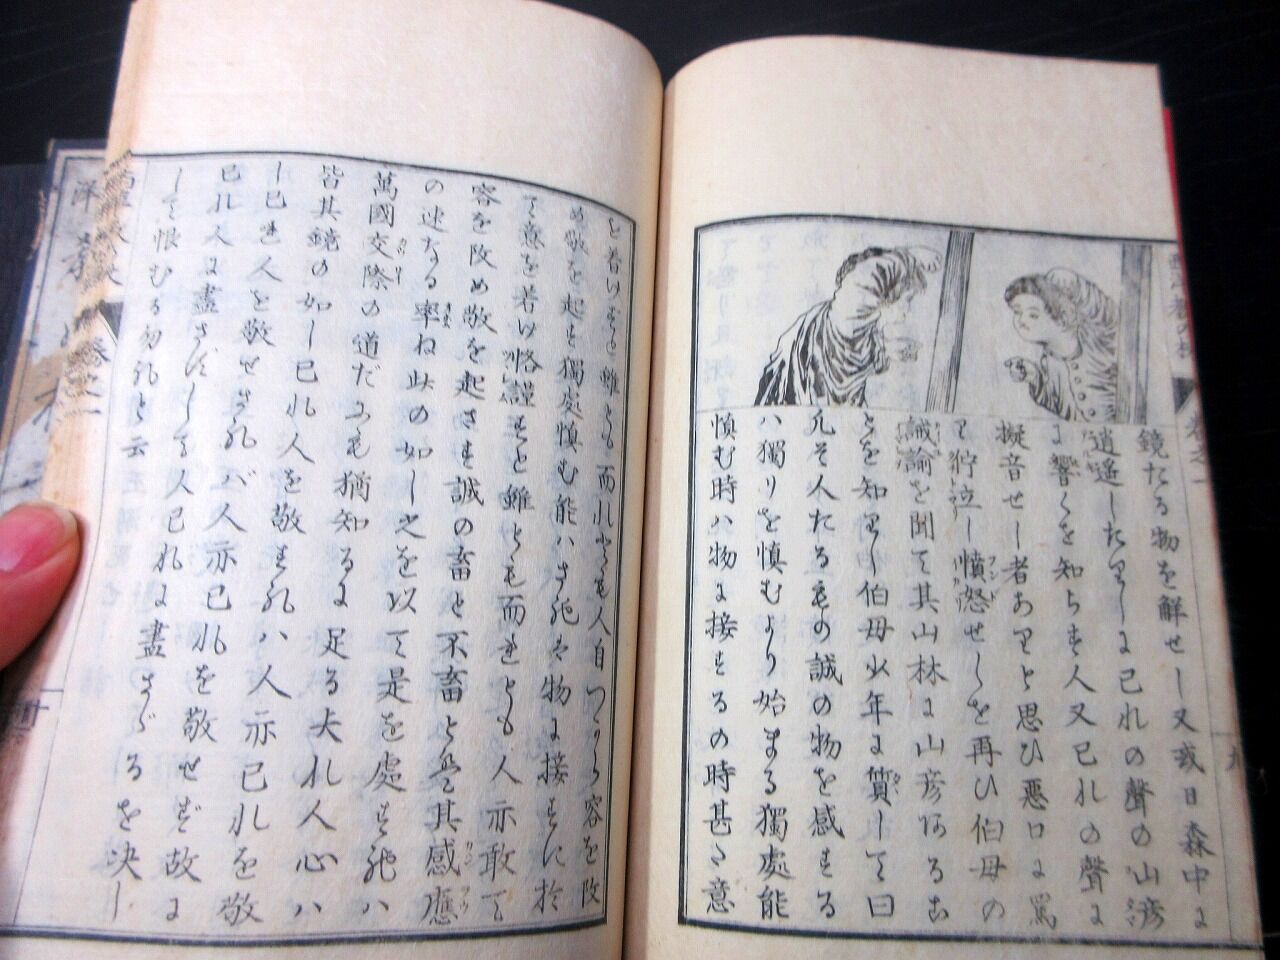 鏡たる物を解せし又或日森中に
逍遥したりしに己れの聲の山彦
に響くを知らず人又己れの聲に
擬音せし者ありと思ひ悪口に罵
り狞泣し憤怒せしを再ひ伯母の
誡諭を聞て其山林に山彦あるこ
とを知りし伯母少年に質して曰
凡そ人たるもの誠の物を感ずる
ハ獨りを慎むより始まる獨處能
慎む時ハ物に接するの時甚た意
を着けずと雖とも而れども人自つから容を改
め敬を起す獨處慎む能ハされは物に接するに於
て意を着け恪謹すと雖とも而れとも人亦敢て
容を改め敬を起さす誠の畜と不畜と其感應
の速なる率ね此の如し之を以て是を處すれハ
萬國交際の道だにも猶知るに足る夫れ人心ハ
皆其鏡の如し己れ人を敬すれハ人亦己れを敬
し己れ人を敬せされバ人亦己れを敬せず故に
己れ人に盡さずして人己れに盡さゞるを决し
して恨むる勿れと云
卷之一
九